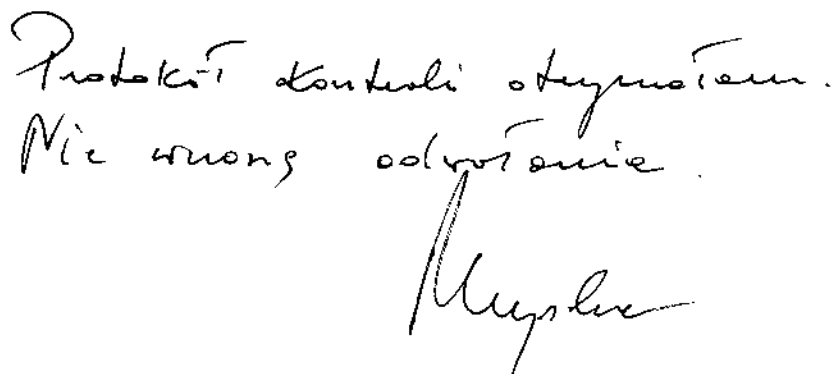 Protokół kontroli otrzymałam.
Nie wnoszę odwołania.